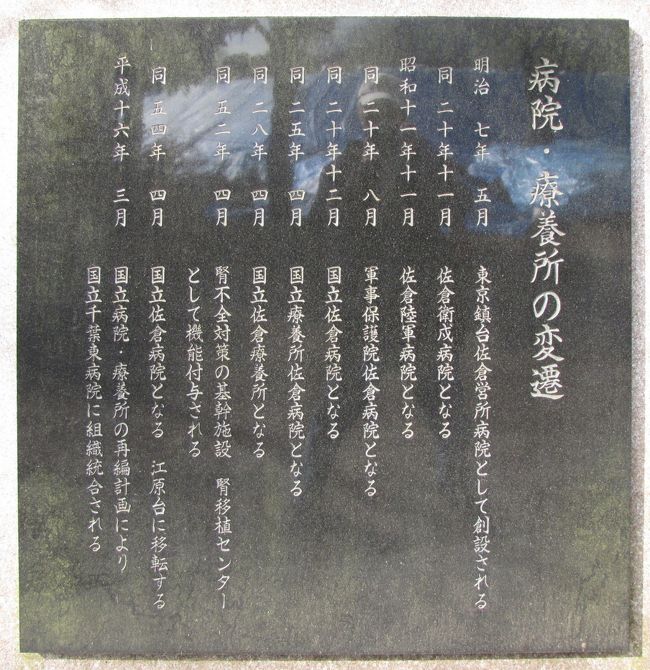 病院・療養所の変遷
明治 七年 五月 東京鎮台佐倉営所病院として創設される
同 二十年十一月 佐倉衛戍病院となる
昭和十一年十一月 佐倉陸軍病院となる
同 二十年 八月 軍事保護院佐倉病院となる
同 二十年十二月 国立佐倉病院となる
同 二五年 四月 国立療養所佐倉病院となる
同 二八年 四月 国立佐倉療養所となる
同 五二年 四月 腎不全対策の基幹施設 腎移植センター
として機能付与される
同 五四年 四月 国立佐倉病院となる 江原台に移転する
平成十六年 三月 国立病院・療養所の再編計画により
国立千葉東病院に組織統合される